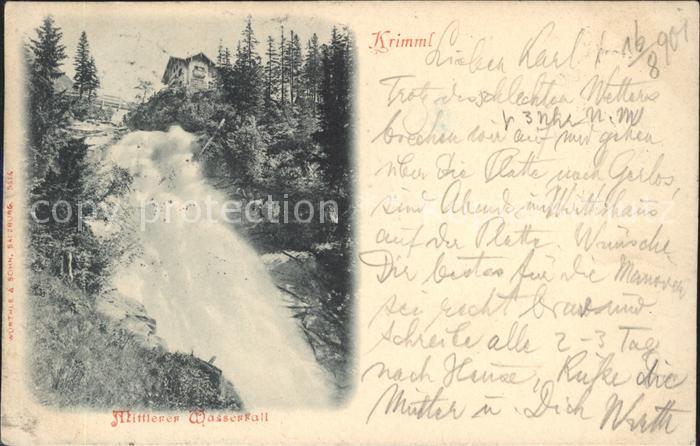 Krimml
16/8 901
Lieben Karl!
Trotz des schlechten Wetters
brechen wir auf und gehen
½ 3 Uhr N. M.
über die Platte nach Gerlos,
sind Abends im Wirtshaus
auf der Platte. Wünsche
Dir bestes für die Manöver
sei recht brav und
schreibe alle 2-3 Tag
nach Hause, Küße die
Mutter u. Dich
Mittlerer Wasserfall
WÜRTHLE & SOHN, SALZBURG.
copy protection for